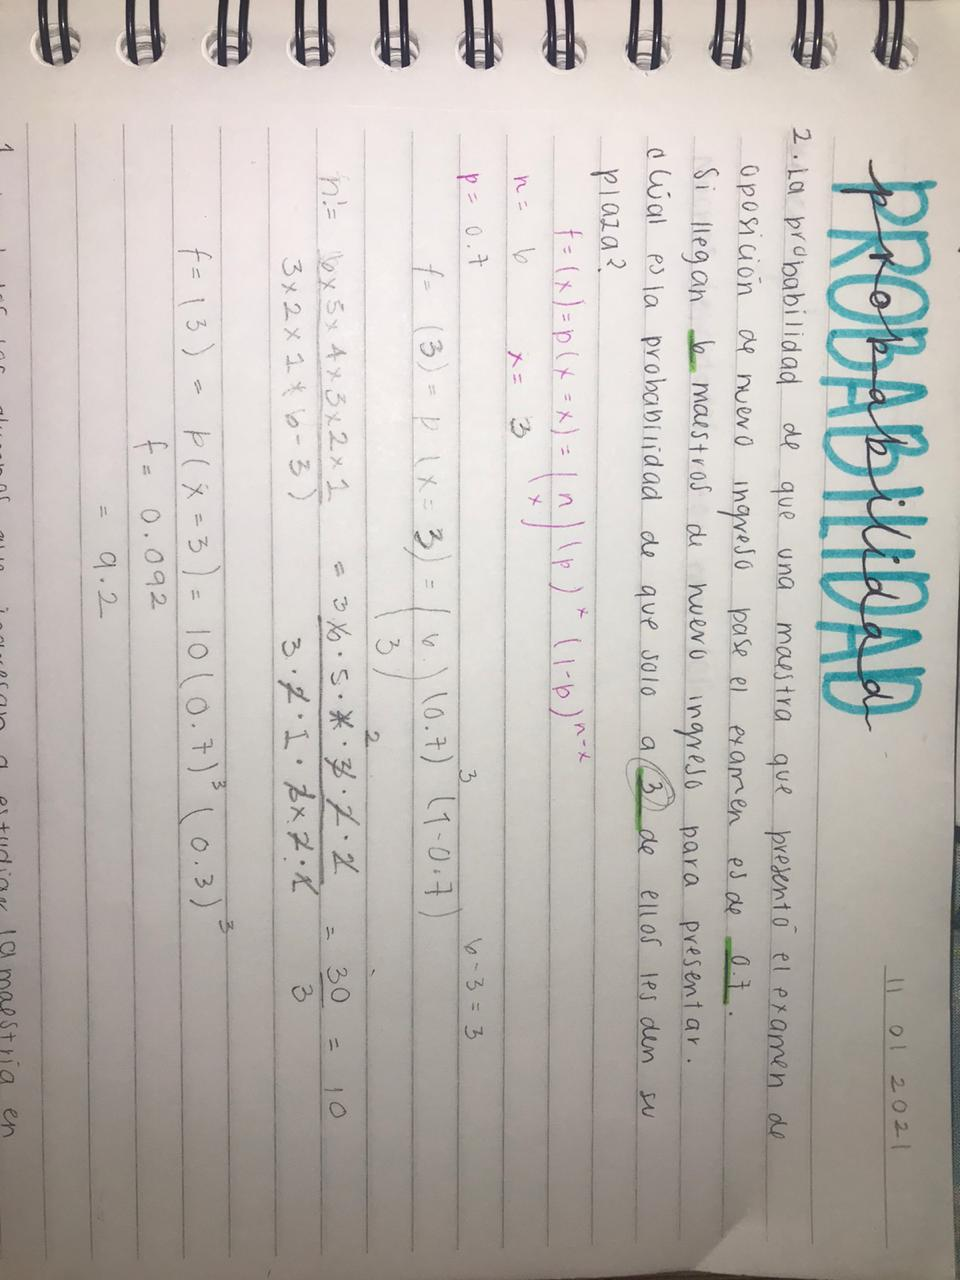 11 01 2021
PROBABILIDAD
probabilidad
2. La probabilidad de que una maestra que presentó el examen de
oposición de nuevo ingreso pase el examen es de 0.7.
Si llegan 6 maestros de nuevo ingreso para presentar.
cuál es la probabilidad de que solo a 3 de ellos les den su
plaza?
f=(x)=p(x=x)=(n/x)(p)^x (1-p)^n-x
n= 6 x= 3
p= 0.7 6-3=3
f= (3)= p(x=3)=(6/3)(0.7)^3 (1-0.7)
n!= 6x5x4x3x2x1 / 3x2x1(6-3) = 36·5·4·3·2·1 / 3·2·1·3x2·1 = 30/3 = 10
f=(3) = p(x=3)= 10(0.7)^3 (0.3)^3
f= 0.092
= 9.2
1. de los alumnos que ingresan a estudiar la maestría en